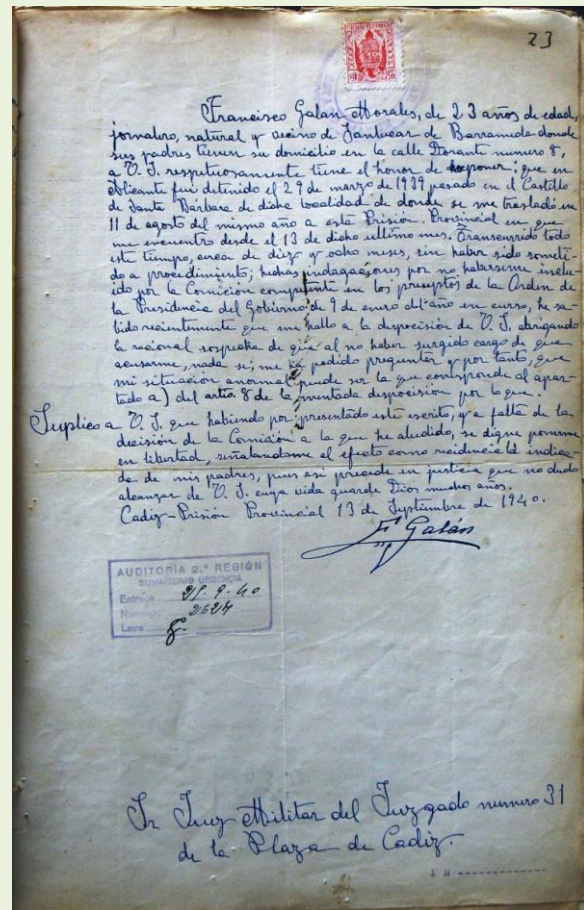 23
Francisco Galan Morales, de 23 años de edad,
jornalero, natural y vecino de Sanlucar de Barrameda donde
sus padres tienen su domicilio en la calle Dorante numero 8,
a V. S. respetuosamente tiene el honor de exponer: que en
Alicante fui detenido el 29 de marzo de 1939 pasado en el Castillo
de Santa Bárbara de dicha localidad de donde se me trasladó en
11 de agosto del mismo año a esta Prisión Provincial en que
me encuentro desde el 13 de dicho ultimo mes. Transcurrido todo
este tiempo, cerca de diez y ocho meses, sin haber sido someti-
do a procedimiento; hechas indagaciones por no habérseme inclu-
ido por la Comición competente en los preceptos de la Orden de
la Presidencia del Gobierno de 9 de enero del año en curso, he sa-
bido recientemente que me hallo a la disposición de V. S. abrigando
la racional sospecha de que al no haber surgido cargo de que
acusarme, nada se me ha podido preguntar y por tanto, que
mi situación anormal puede ser la que corresponde al apar-
tado a) del artio 8 de la mentada disposición por lo que.
Suplico a V. S. que habiendo por presentado este escrito, y a falta de la
decisión de la Comisión a la que he aludido, se digne ponerme
en libertad, señalandome al efecto como residencia la indica-
da de mis padres, pues asi procede en justicia que no dudo
alcanzar de V. S. cuya vida guarde Dios muchos años.
Cadiz-Prisión Provincial 13 de Septiembre de 1940.
F. Galán
AUDITORÍA 2.ª REGIÓN
SUMARÍSIMO URGENCIA
Entrada 21-9-40
Número
Letra G.
Sr Juez Militar del Juzgado numero 31
de la Plaza de Cadiz.